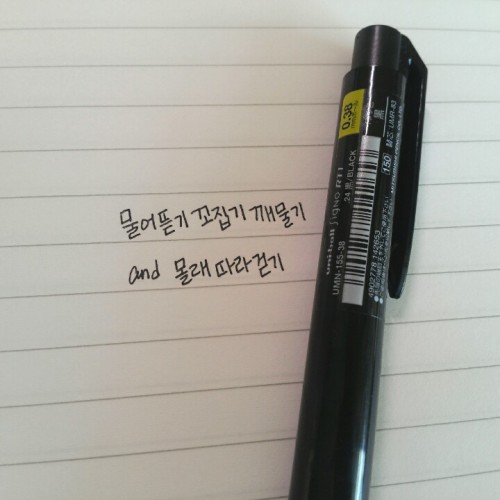 물어뜯기 꼬집기 깨물기
and 몰래 따라걷기
0.38
uni-ball Signo RT1
UMN-155-38
24 黒/BLACK
4902778 142653
150
UMR-83
黒